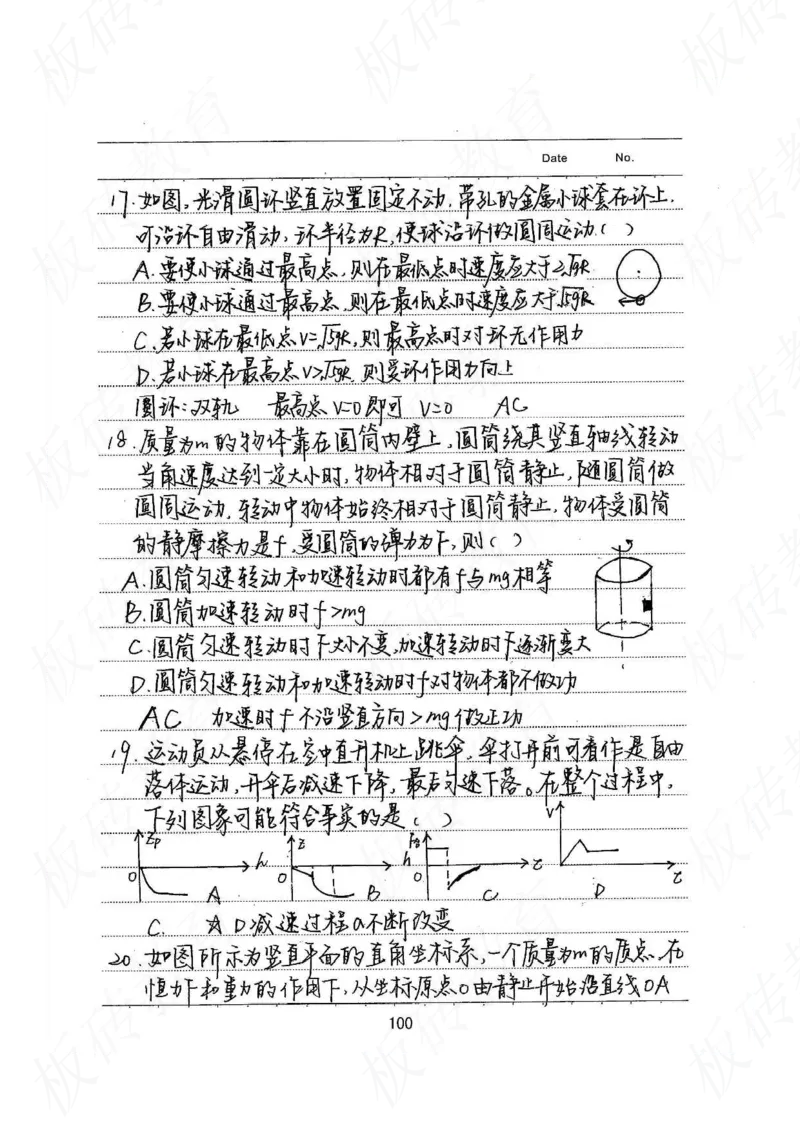 Date No.
17.如图,光滑圆环竖直放置固定不动,带孔的金属小球套在环上,
可沿环自由滑动,环半径为R,使球沿环做圆周运动( )
A.要使小球通过最高点,则在最低点时速度应大于2√gR
B.要使小球通过最高点,则在最低点时速度应大于√5gR
C.若小球在最低点V=√5gR,则最高点时对环无作用力
D.若小球在最高点V>√5gR,则受环作用力向上
圆环:双轨 最高点V=0即可 V=0 AC
18.质量为m的物体靠在圆筒内壁上,圆筒绕其竖直轴线转动
当角速度达到一定大小时,物体相对于圆筒静止,随圆筒做
圆周运动,转动中物体始终相对于圆筒静止,物体受圆筒
的静摩擦力是f,受圆筒的弹力为F,则( )
A.圆筒匀速转动和加速转动时都有f与mg相等
B.圆筒加速转动时f>mg
C.圆筒匀速转动时F大小不变,加速转动时F逐渐变大
D.圆筒匀速转动和加速转动时f对物体都不做功
AC 加速时f不沿竖直方向>mg做正功
19.运动员从悬停在空中直升机上跳伞,伞打开前可看作是自由
落体运动,开伞后减速下降,最后匀速下落。在整个过程中,
下列图象可能符合事实的是( )
Ep h O A
E h O B
F合 t O C
V t D
C. D减速过程a不断改变
20.如图所示为竖直平面的直角坐标系,一个质量为m的质点,在
恒力F和重力的作用下,从坐标原点O由静止开始沿直线OA
100
板砖教育